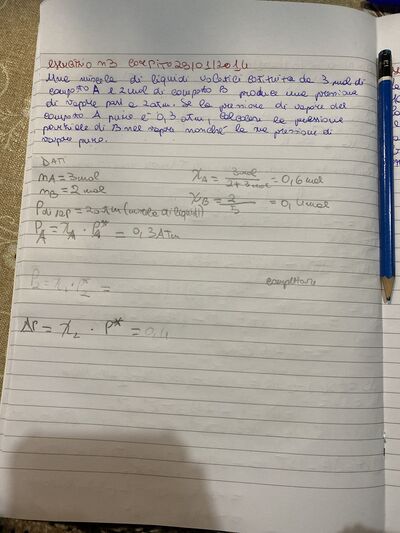 esercizio n3 compito 23/01/2014
Una miscela di liquidi volatili costituita da 3 mol di
composto A e 2 mol di composto B produce una pressione
di vapore pari a 2 atm. Se la pressione di vapore del
composto A puro è 0,3 atm, calcolare la pressione
parziale di B nel vapore nonché la sua pressione di
vapore puro.
DATI
mA = 3 mol
mB = 2 mol
χA = 3mol / 2+3 mol = 0,6 mol
χB = 2 / 5 = 0,4 mol
= 2 atm (miscela di liquidi)
PA = χA · P*A = 0,3 ATM
P = χ · P* =
completare
ΔP = χ2 · P* = 0,4